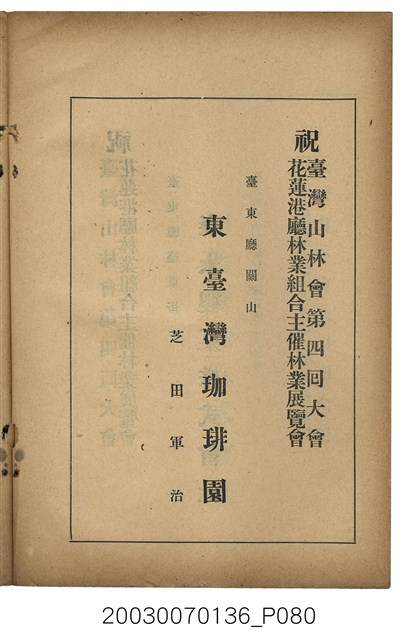 祝 臺灣山林會第四回大會
花蓮港廳林業組合主催林業展覽會
臺東廳關山
東臺灣珈琲園
芝田軍治
20030070136_P080